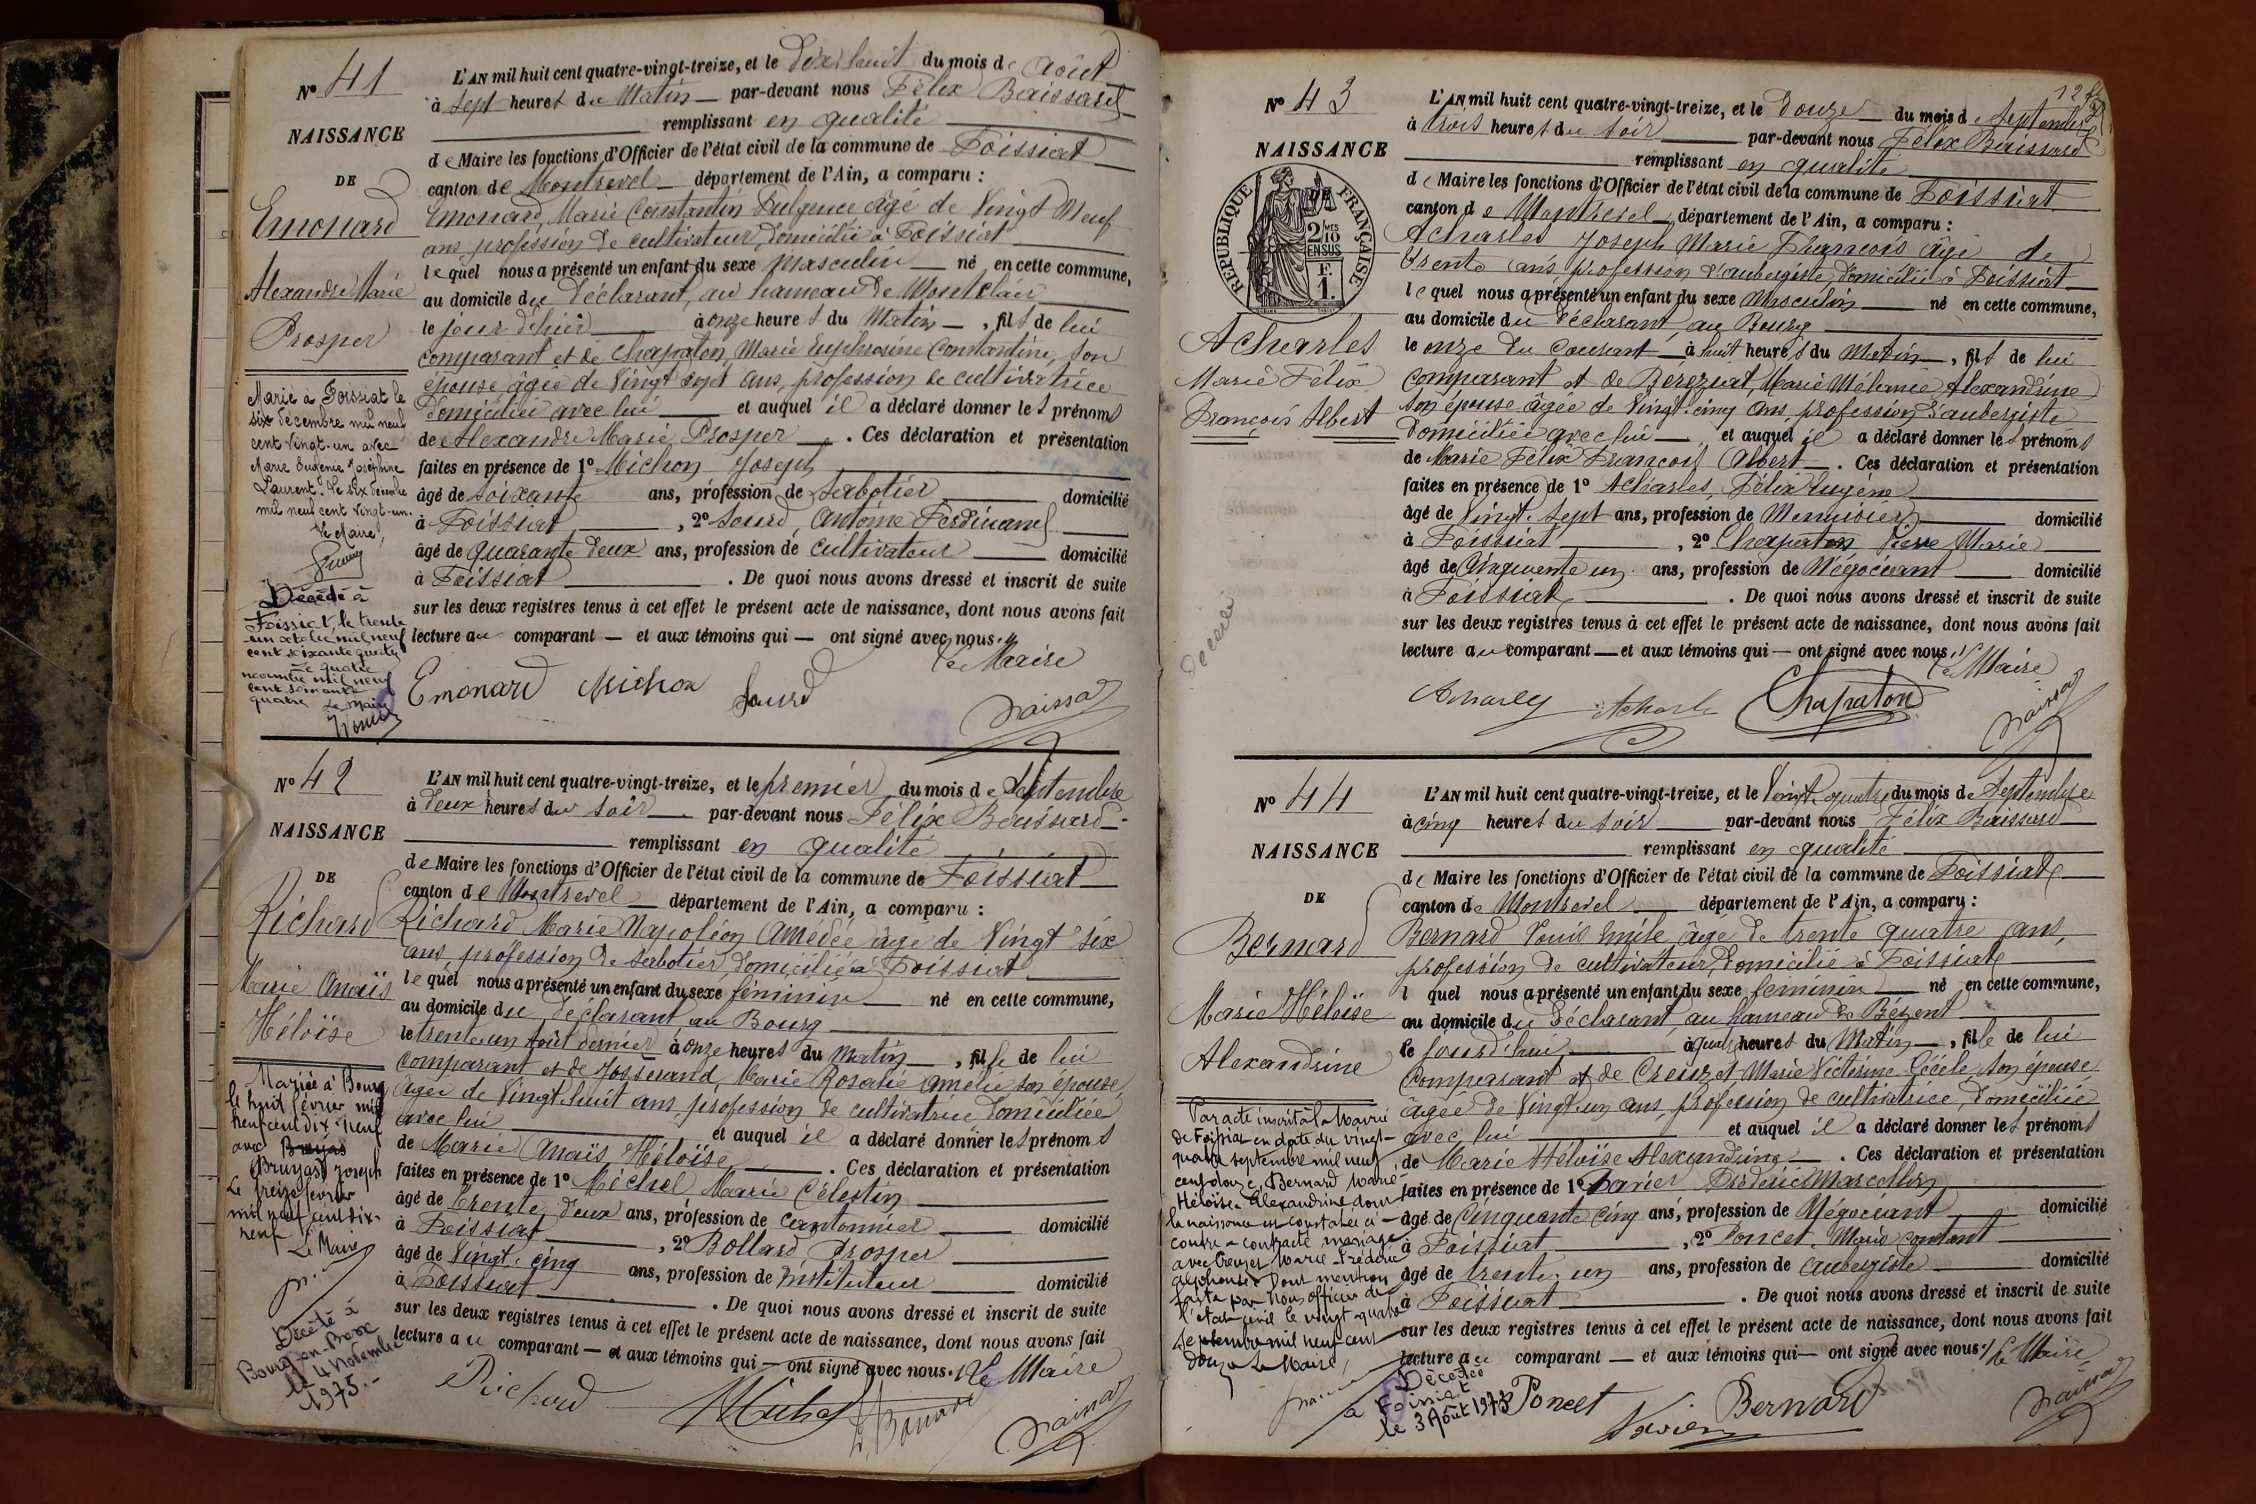 N° 41
NAISSANCE
DE
Emonard
Alexandre Marie
Prosper
Marié à Foissiat le
six décembre mil neuf
cent vingt-un avec
Marie Eugénie Joséphine
Laurent. Le six décembre
mil neuf cent vingt-un.
Le Maire,
Décédé à
Foissiat, le trente
un octobre mil neuf
cent soixante quatre
Le quatre
novembre mil neuf
cent soixante
quatre Le Maire
L'AN mil huit cent quatre-vingt-treize, et le dix huit du mois de Août
à sept heures du Matin par-devant nous Félix Baissard
remplissant en qualité
de Maire les fonctions d'Officier de l'état civil de la commune de Foissiat
canton de Montrevel département de l'Ain, a comparu :
Emonard, Marie Constantin Fulgence âgé de Vingt Neuf
ans, profession de cultivateur, domicilié à Foissiat
lequel nous a présenté un enfant du sexe Masculin né en cette commune,
au domicile du déclarant, au hameau de Montclair
le jour d'hier à onze heures du Matin, fils de lui
comparant et de Chapaton, Marie Euphrosine Constantine, son
épouse âgée de Vingt sept ans, profession de cultivatrice
domiciliée avec lui et auquel il a déclaré donner les prénoms
de Alexandre Marie Prosper. Ces déclaration et présentation
faites en présence de 1° Michon Joseph
âgé de soixante ans, profession de Sabotier domicilié
à Foissiat, 2° Sourd, Antoine Ferdinand
âgé de quarante deux ans, profession de cultivateur domicilié
à Foissiat. De quoi nous avons dressé et inscrit de suite
sur les deux registres tenus à cet effet le présent acte de naissance, dont nous avons fait
lecture au comparant — et aux témoins qui — ont signé avec nous. Le Maire
Emonard Michon Sourd Baissard
N° 42
NAISSANCE
DE
Richard
Marie Anaïs
Héloïse
Mariée à Bourg
le huit février mil
neuf cent dix-neuf
avec Bruyas
Bruyas Joseph
Le treize février
mil neuf cent dix-
neuf
Le Maire
Décédé à
Bourg-en-Bresse
le 4 Novembre
1975.-
L'AN mil huit cent quatre-vingt-treize, et le premier du mois de Septembre
à deux heures du soir par-devant nous Félix Baissard
remplissant en qualité
de Maire les fonctions d'Officier de l'état civil de la commune de Foissiat
canton de Montrevel département de l'Ain, a comparu :
Richard Marie Napoléon Amédée âgé de Vingt six
ans, profession de sabotier, domicilié à Foissiat
lequel nous a présenté un enfant du sexe féminin né en cette commune,
au domicile du déclarant au Bourg
le trente un Août dernier à onze heures du Matin, fille de lui
comparant et de Josserand, Marie Rosalie Amélie son épouse,
âgée de Vingt huit ans, profession de cultivatrice domiciliée
avec lui et auquel il a déclaré donner les prénoms
de Marie Anaïs Héloïse. Ces déclaration et présentation
faites en présence de 1° Michel Marie Célestin
âgé de trente deux ans, profession de cantonnier domicilié
à Foissiat, 2° Bollard Prosper
âgé de Vingt cinq ans, profession de Instituteur domicilié
à Foissiat. De quoi nous avons dressé et inscrit de suite
sur les deux registres tenus à cet effet le présent acte de naissance, dont nous avons fait
lecture au comparant — et aux témoins qui — ont signé avec nous. Le Maire
Richard Michel Baissard
N° 43
NAISSANCE
RÉPUBLIQUE FRANÇAISE
2 MES
10
EN SUS
F.
1.
Acharles
Marie Félix
François Albert
décédé
L'AN mil huit cent quatre-vingt-treize, et le douze du mois de Septembre
à trois heures du soir par-devant nous Félix Baissard
remplissant en qualité
de Maire les fonctions d'Officier de l'état civil de la commune de Foissiat
canton de Montrevel, département de l'Ain, a comparu :
Acharles Joseph Marie François âgé de
trente ans profession d'aubergiste domicilié à Foissiat
lequel nous a présenté un enfant du sexe Masculin né en cette commune,
au domicile du déclarant, au Bourg
le onze du courant à huit heures du Matin, fils de lui
comparant et de Bereziat, Marie Mélanie Alexandrine
son épouse âgée de Vingt cinq ans, profession d'aubergiste
domiciliée avec lui et auquel il a déclaré donner les prénoms
de Marie Félix François Albert. Ces déclaration et présentation
faites en présence de 1° Acharles, Félix Eugène
âgé de Vingt sept ans, profession de Menuisier domicilié
à Foissiat, 2° Chapaton Pierre Marie
âgé de Cinquante un ans, profession de Négociant domicilié
à Foissiat. De quoi nous avons dressé et inscrit de suite
sur les deux registres tenus à cet effet le présent acte de naissance, dont nous avons fait
lecture au comparant — et aux témoins qui — ont signé avec nous. Le Maire
Acharles Acharles Chapaton Baissard
N° 44
NAISSANCE
DE
Bernard
Marie Héloïse
Alexandrine
Par acte inscrit à la Mairie
de Foissiat en date du vingt-
quatre septembre mil neuf
cent douze, Bernard Marie
Héloïse Alexandrine dont
la naissance est constatée ci-
contre a contracté mariage
avec Creuzet Marie Frédéric
Alphonse. Dont mention
faite par nous officier de
l'état civil le vingt quatre
Septembre mil neuf cent
douze Le Maire,
Décédée
à Foissiat
le 3 Août 1973
L'AN mil huit cent quatre-vingt-treize, et le Vingt quatre du mois de Septembre
à cinq heures du soir par-devant nous Félix Baissard
remplissant en qualité
de Maire les fonctions d'Officier de l'état civil de la commune de Foissiat
canton de Montrevel département de l'Ain, a comparu :
Bernard Louis Emile âgé de trente quatre ans,
profession de cultivateur, domicilié à Foissiat
l quel nous a présenté un enfant du sexe féminin né en cette commune,
au domicile du déclarant, au hameau de Bézent
le jourd'hui à quatre heures du Matin, fille de lui
comparant et de Creuzet, Marie Victorine Cécile, son épouse
âgée de Vingt un ans, profession de cultivatrice, domiciliée
avec lui et auquel il a déclaré donner les prénoms
de Marie Héloïse Alexandrine. Ces déclaration et présentation
faites en présence de 1° Frédéric Marcellin
âgé de Cinquante cinq ans, profession de Négociant domicilié
à Foissiat, 2° Poncet, Marie Constant
âgé de trente un ans, profession de aubergiste domicilié
à Foissiat. De quoi nous avons dressé et inscrit de suite
sur les deux registres tenus à cet effet le présent acte de naissance, dont nous avons fait
lecture au comparant — et aux témoins qui — ont signé avec nous. Le Maire
Poncet Bernard Baissard